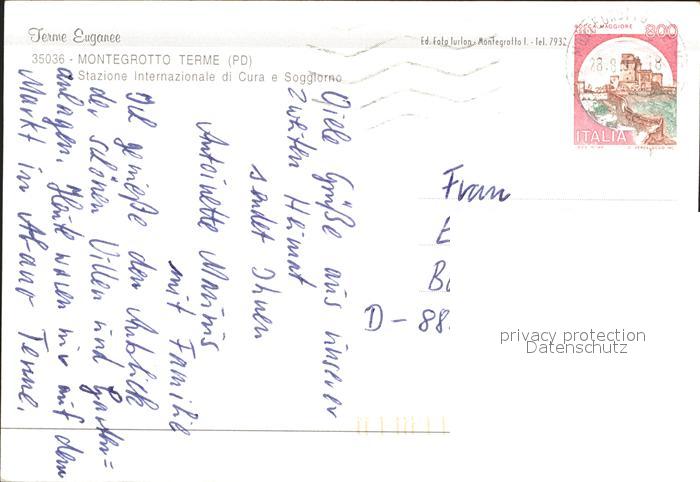 Terme Euganee
35036 - MONTEGROTTO TERME (PD)
Stazione Internazionale di Cura e Soggiorno
Ed. Foto Turlon - Montegrotto T. - Tel. 7932
ROCCA MAGGIORE 800
ITALIA
Viele Grüße aus unserer
zweiten Heimat
sendet Ihnen
Antoinette
mit Familie
Ich genieße den Anblick
der schönen Villen und Garten=
anlagen. Heute waren wir auf dem
Markt in Abano Terme.
Frau
E
B
D - 88
privacy protection
Datenschutz